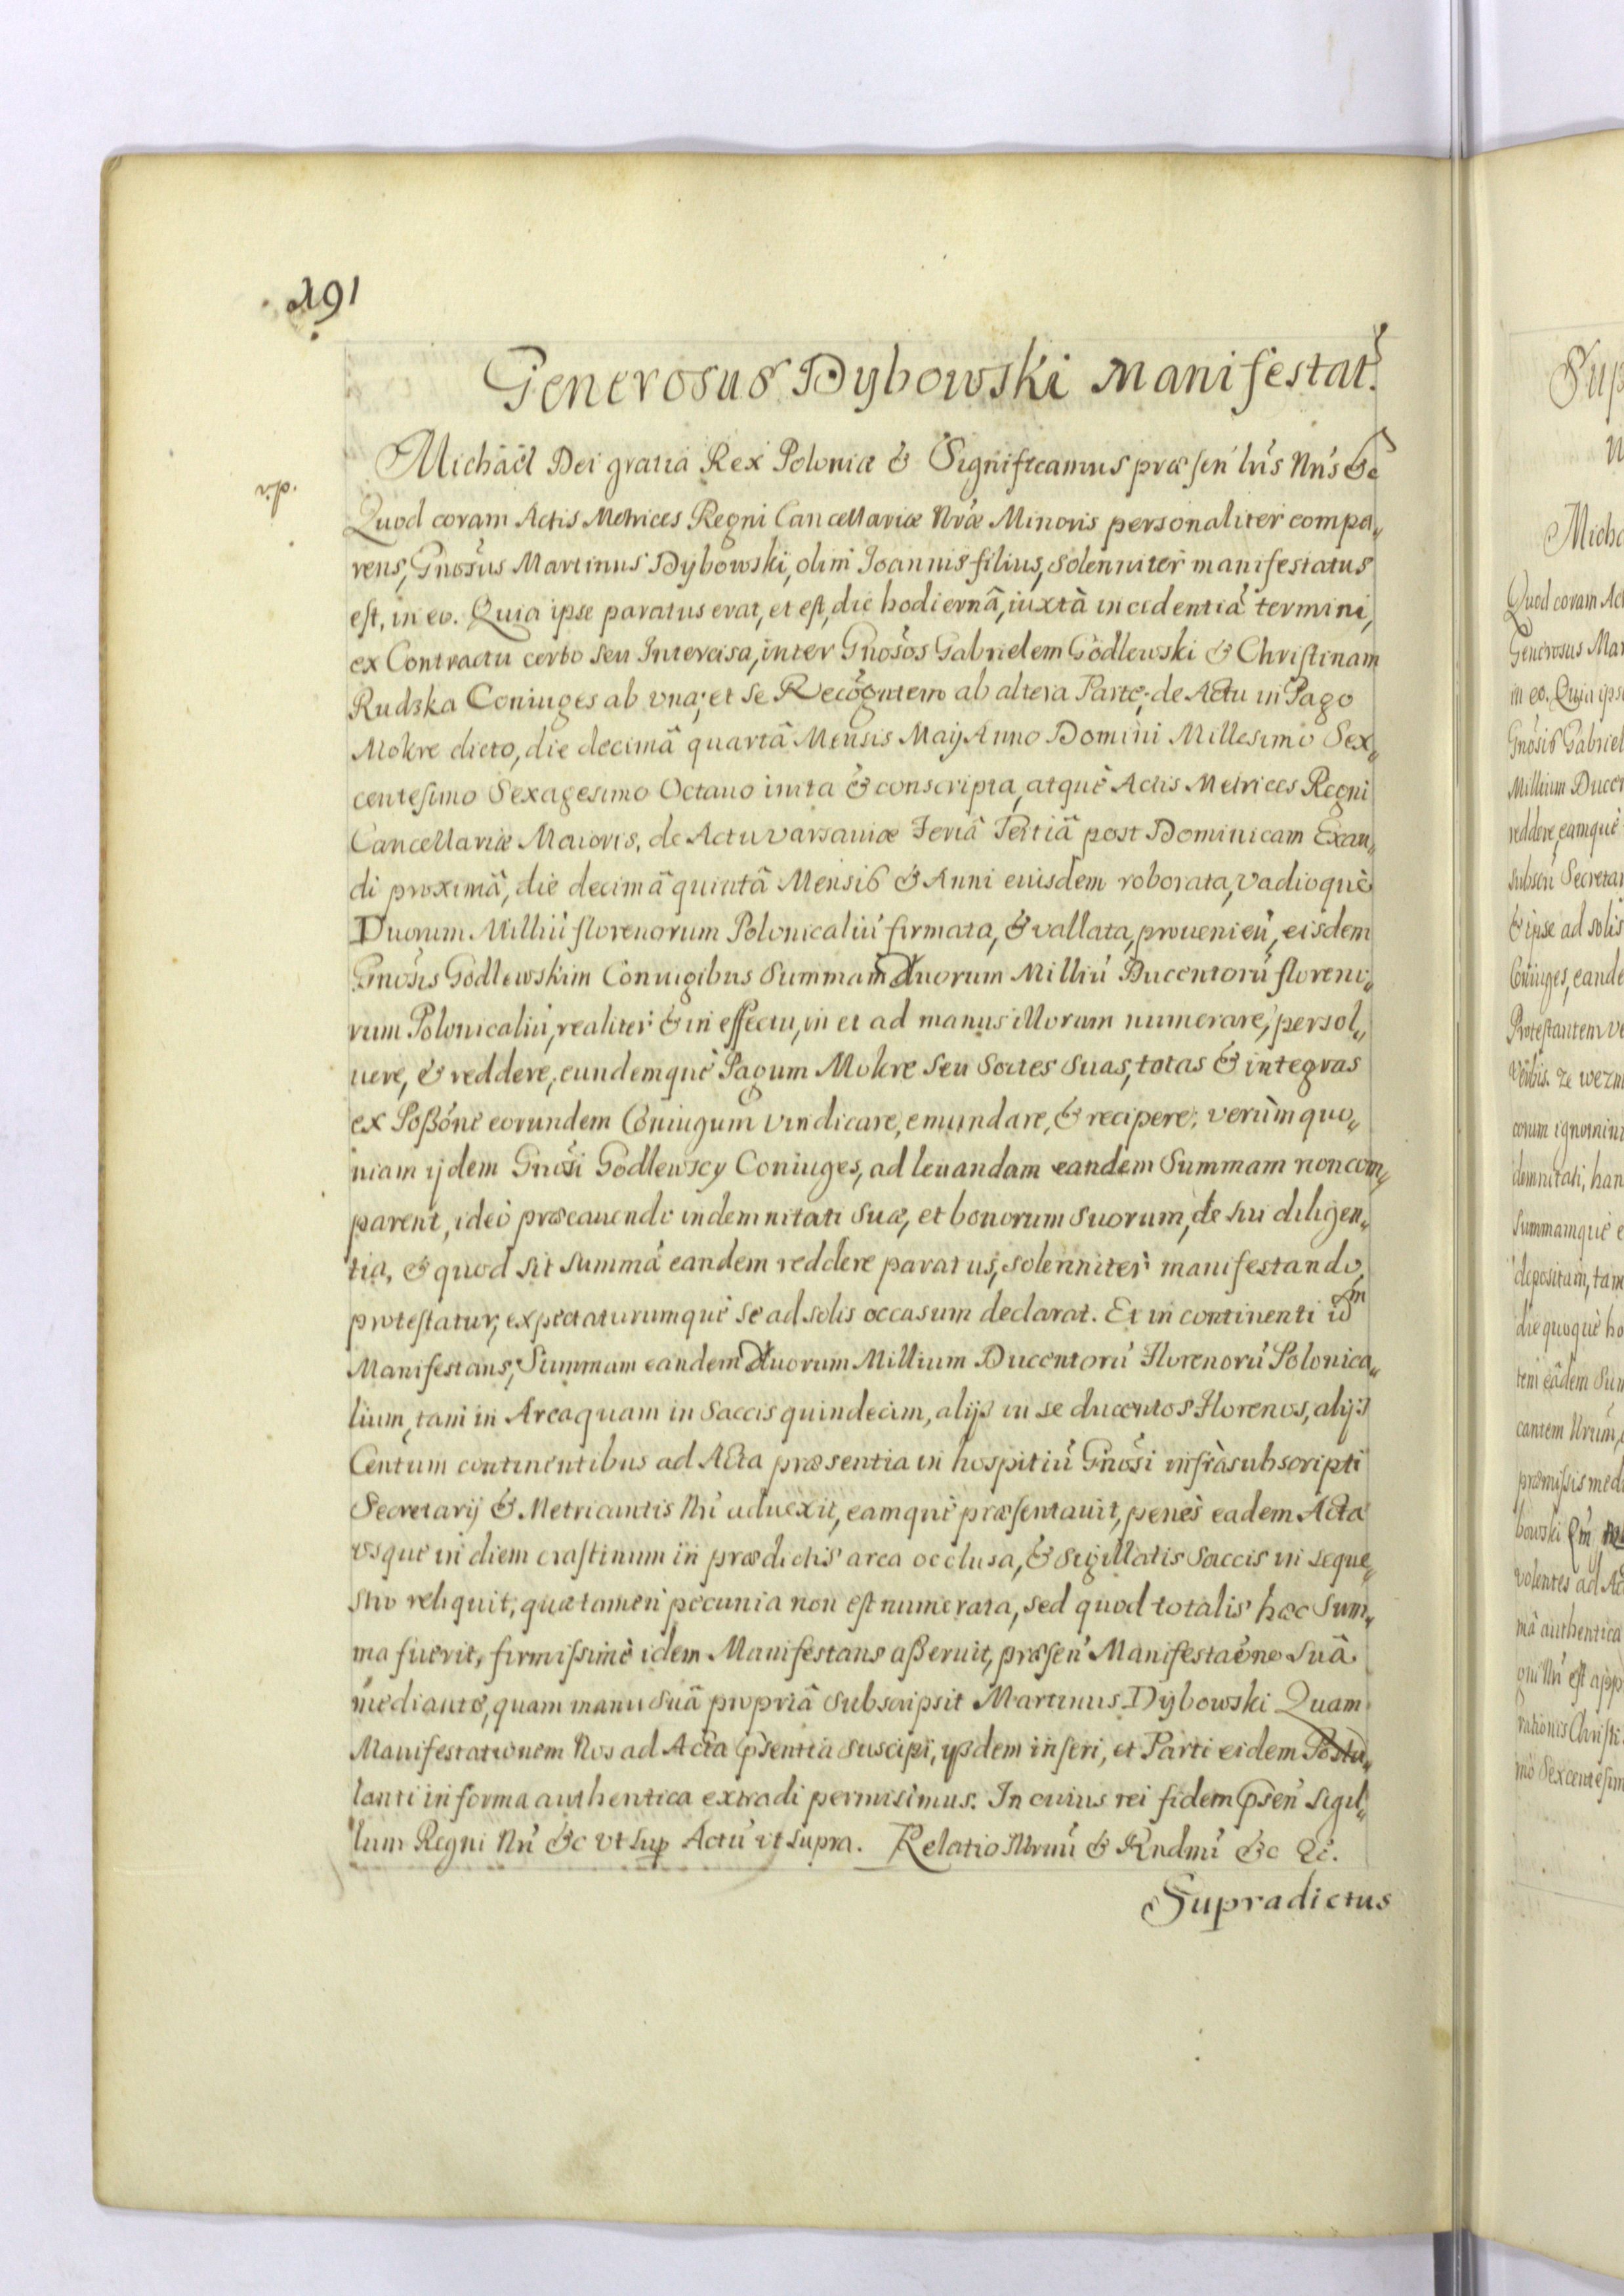 191
Generosus Dybowski Manifestat.
Michaël Dei gratia Rex Poloniæ & Significamus præsen lrs̃ Nrı̃s &c
Quod coram Actis Metrices Regni Cancellariæ Nræ Minoris personaliter compa„
rens, Gnosus Martinus Dybowski, olim Joannis filius, solenniter manifestatus
est, in eo. Quia ipse paratus erat, et est, die hodiernâ, iuxtà incidentiã termini,
ex Contractu certo seu Intercisa, inter Gnosos Gabrielem Godlewski & Christinam
Rudzka Coniuges ab vna; et se Recogntem ab altera Parte; de Actu in Pago
Mokre dicto, die decimâ quartâ Mensis Maij Anno Domini Millesimo Sex„
centesimo Sexagesimo Octauo inita & conscripta, atquè Actis Metrices Regni
Cancellariæ Maioris, de Actu Varsauiæ Feriâ Tertiâ post Dominicam Exau„
di proximâ, die decimâ quintâ Mensis & Anni eiusdem roborata, Vadioquè
Duorum Milliũ florenorum Polonicaliũ firmata, & vallata, prouenieñ, eisdem
Gnosis Godlewskim Coniugibus Summam duorum Milliũ Ducentorũ floreno„
rum Polonicaliũ, realiter & in effectu, in et ad manus illorum numerare, persol„
uere, & reddere, eundemquè Pagum Mokre seu Sortes suas, totas & integras
ex Poßone eorundem Coniugum vindicare, emundare, & recipere; verùm quo„
niam ijdem Gnosi Godlewscy Coniuges, ad leuandam eandem Summam non com„
parent, ideò præcauendo indemnitati suæ, et bonorum suorum, de sui diligen„
tia, & quod sit summã eandem reddere paratus, solenniter manifestando,
protestatur, expectaturumquè se ad solis occasum declarat. Et in continenti idm
Manifestans, Summam eandem duorum Millium Ducentorũ Florenorũ Polonica„
lium, tam in Arca quam in Saccis quindecim, alijs in se ducentos Florenos, alijs
Centum continentibus ad Acta præsentia in hospitiũ Gnosi infràsubscripti
Secretarij & Metricantis Nri aduexit, eamquè præsentauit, penès eadem Acta
vsque in diem crastinum in prædictis arca occlusa, & sigillatis Saccis in seque„
stro reliquit; quæ tamen pecunia non est numerata, sed quod totalis hæc Sum„
ma fuerit, firmissimè idem Manifestans aßeruit, præsen Manifestaone suâ
mediante, quam manu suâ propriâ subscripsit Martinus Dybowski Quam
Manifestationem Nos ad Acta psentia suscipi, ijsdem inseri, et Parti eidem Postu„
lanti in forma authentica extradi permisimus. In cuius rei fidem psen sigil„
lum Regni Nri &c vt sup Actũ vt supra. Relatio Illrmi & Rndmi &c &c.
Supradictus